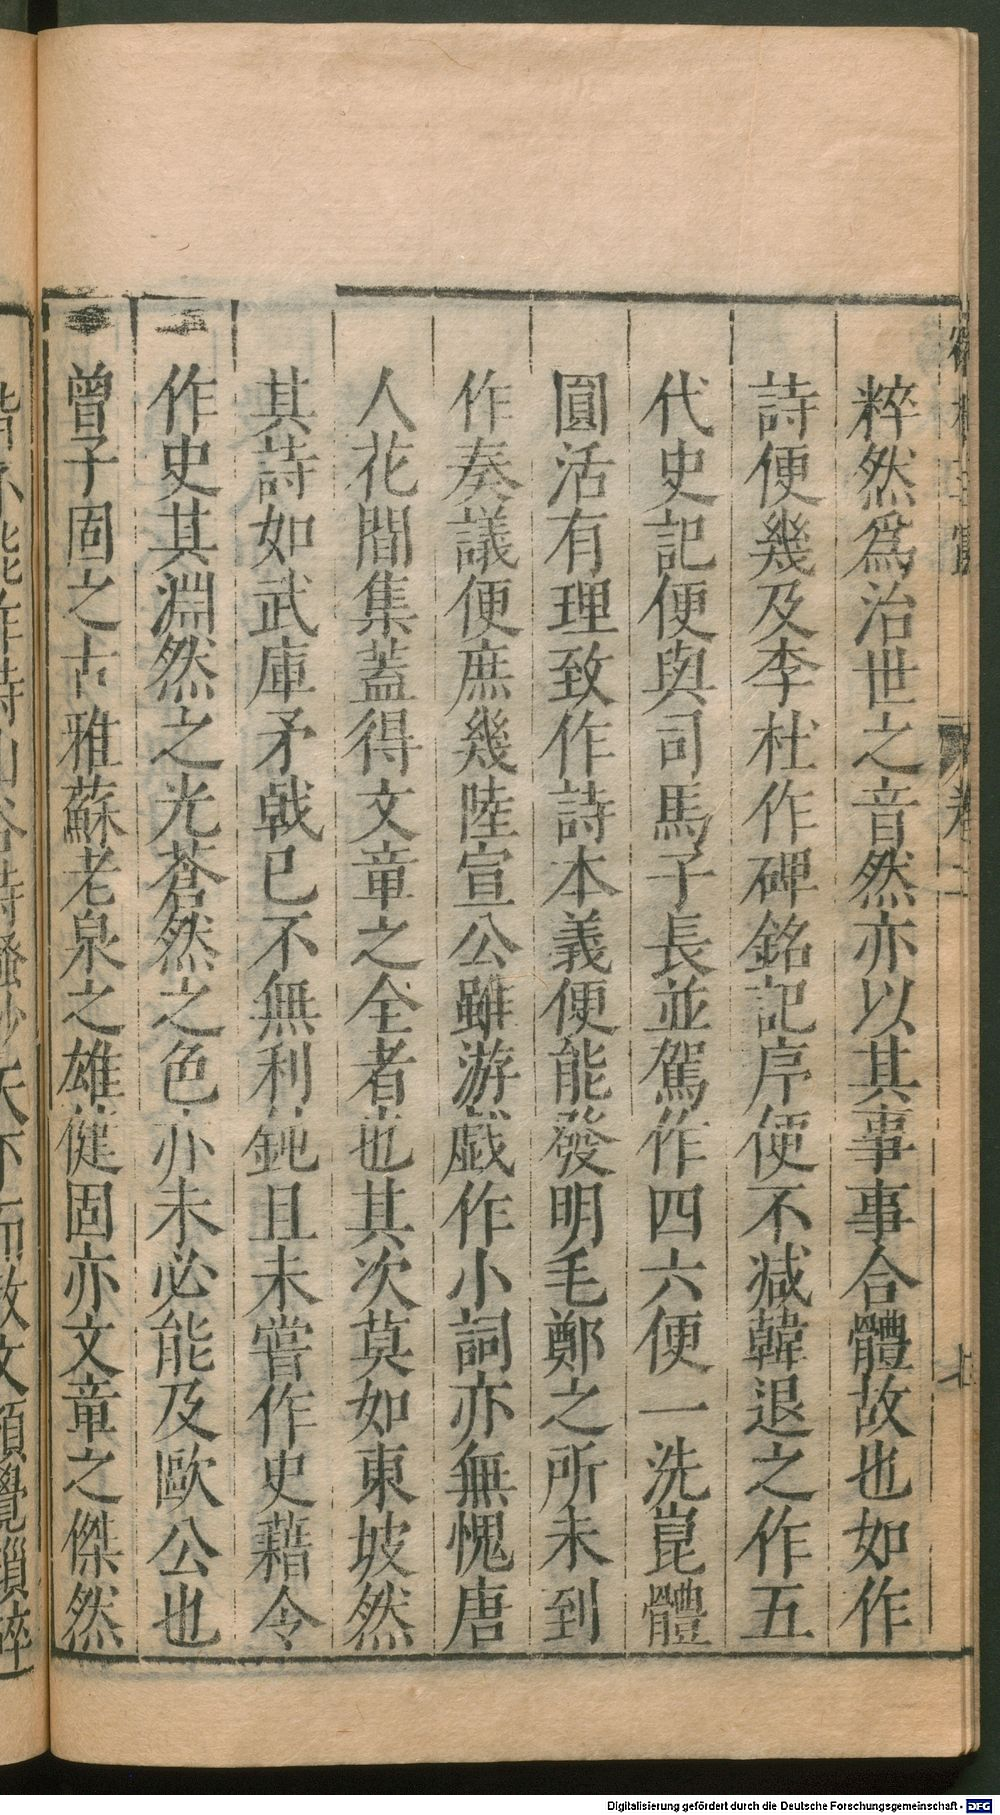 粹然爲治世之音然亦以其事事合體故也如作
詩便幾及李杜作碑銘記序便不減韓退之作五
代史記便與司馬子長並駕作四六便一洗崑體
圓活有理致作詩本義便能發明毛鄭之所未到
作奏議便庶幾陸宣公雖游戯作小詞亦無愧唐
人花間集蓋得文章之全者也其次莫如東坡然
其詩如武庫矛戟已不無利鈍且未嘗作史藉令
作史其淵然之光蒼然之色亦未必能及歐公也
曾子固之古雅蘇老泉之雄健固亦文章之傑然
卷二
七
Digitalisierung gefördert durch die Deutsche Forschungsgemeinschaft - DFG